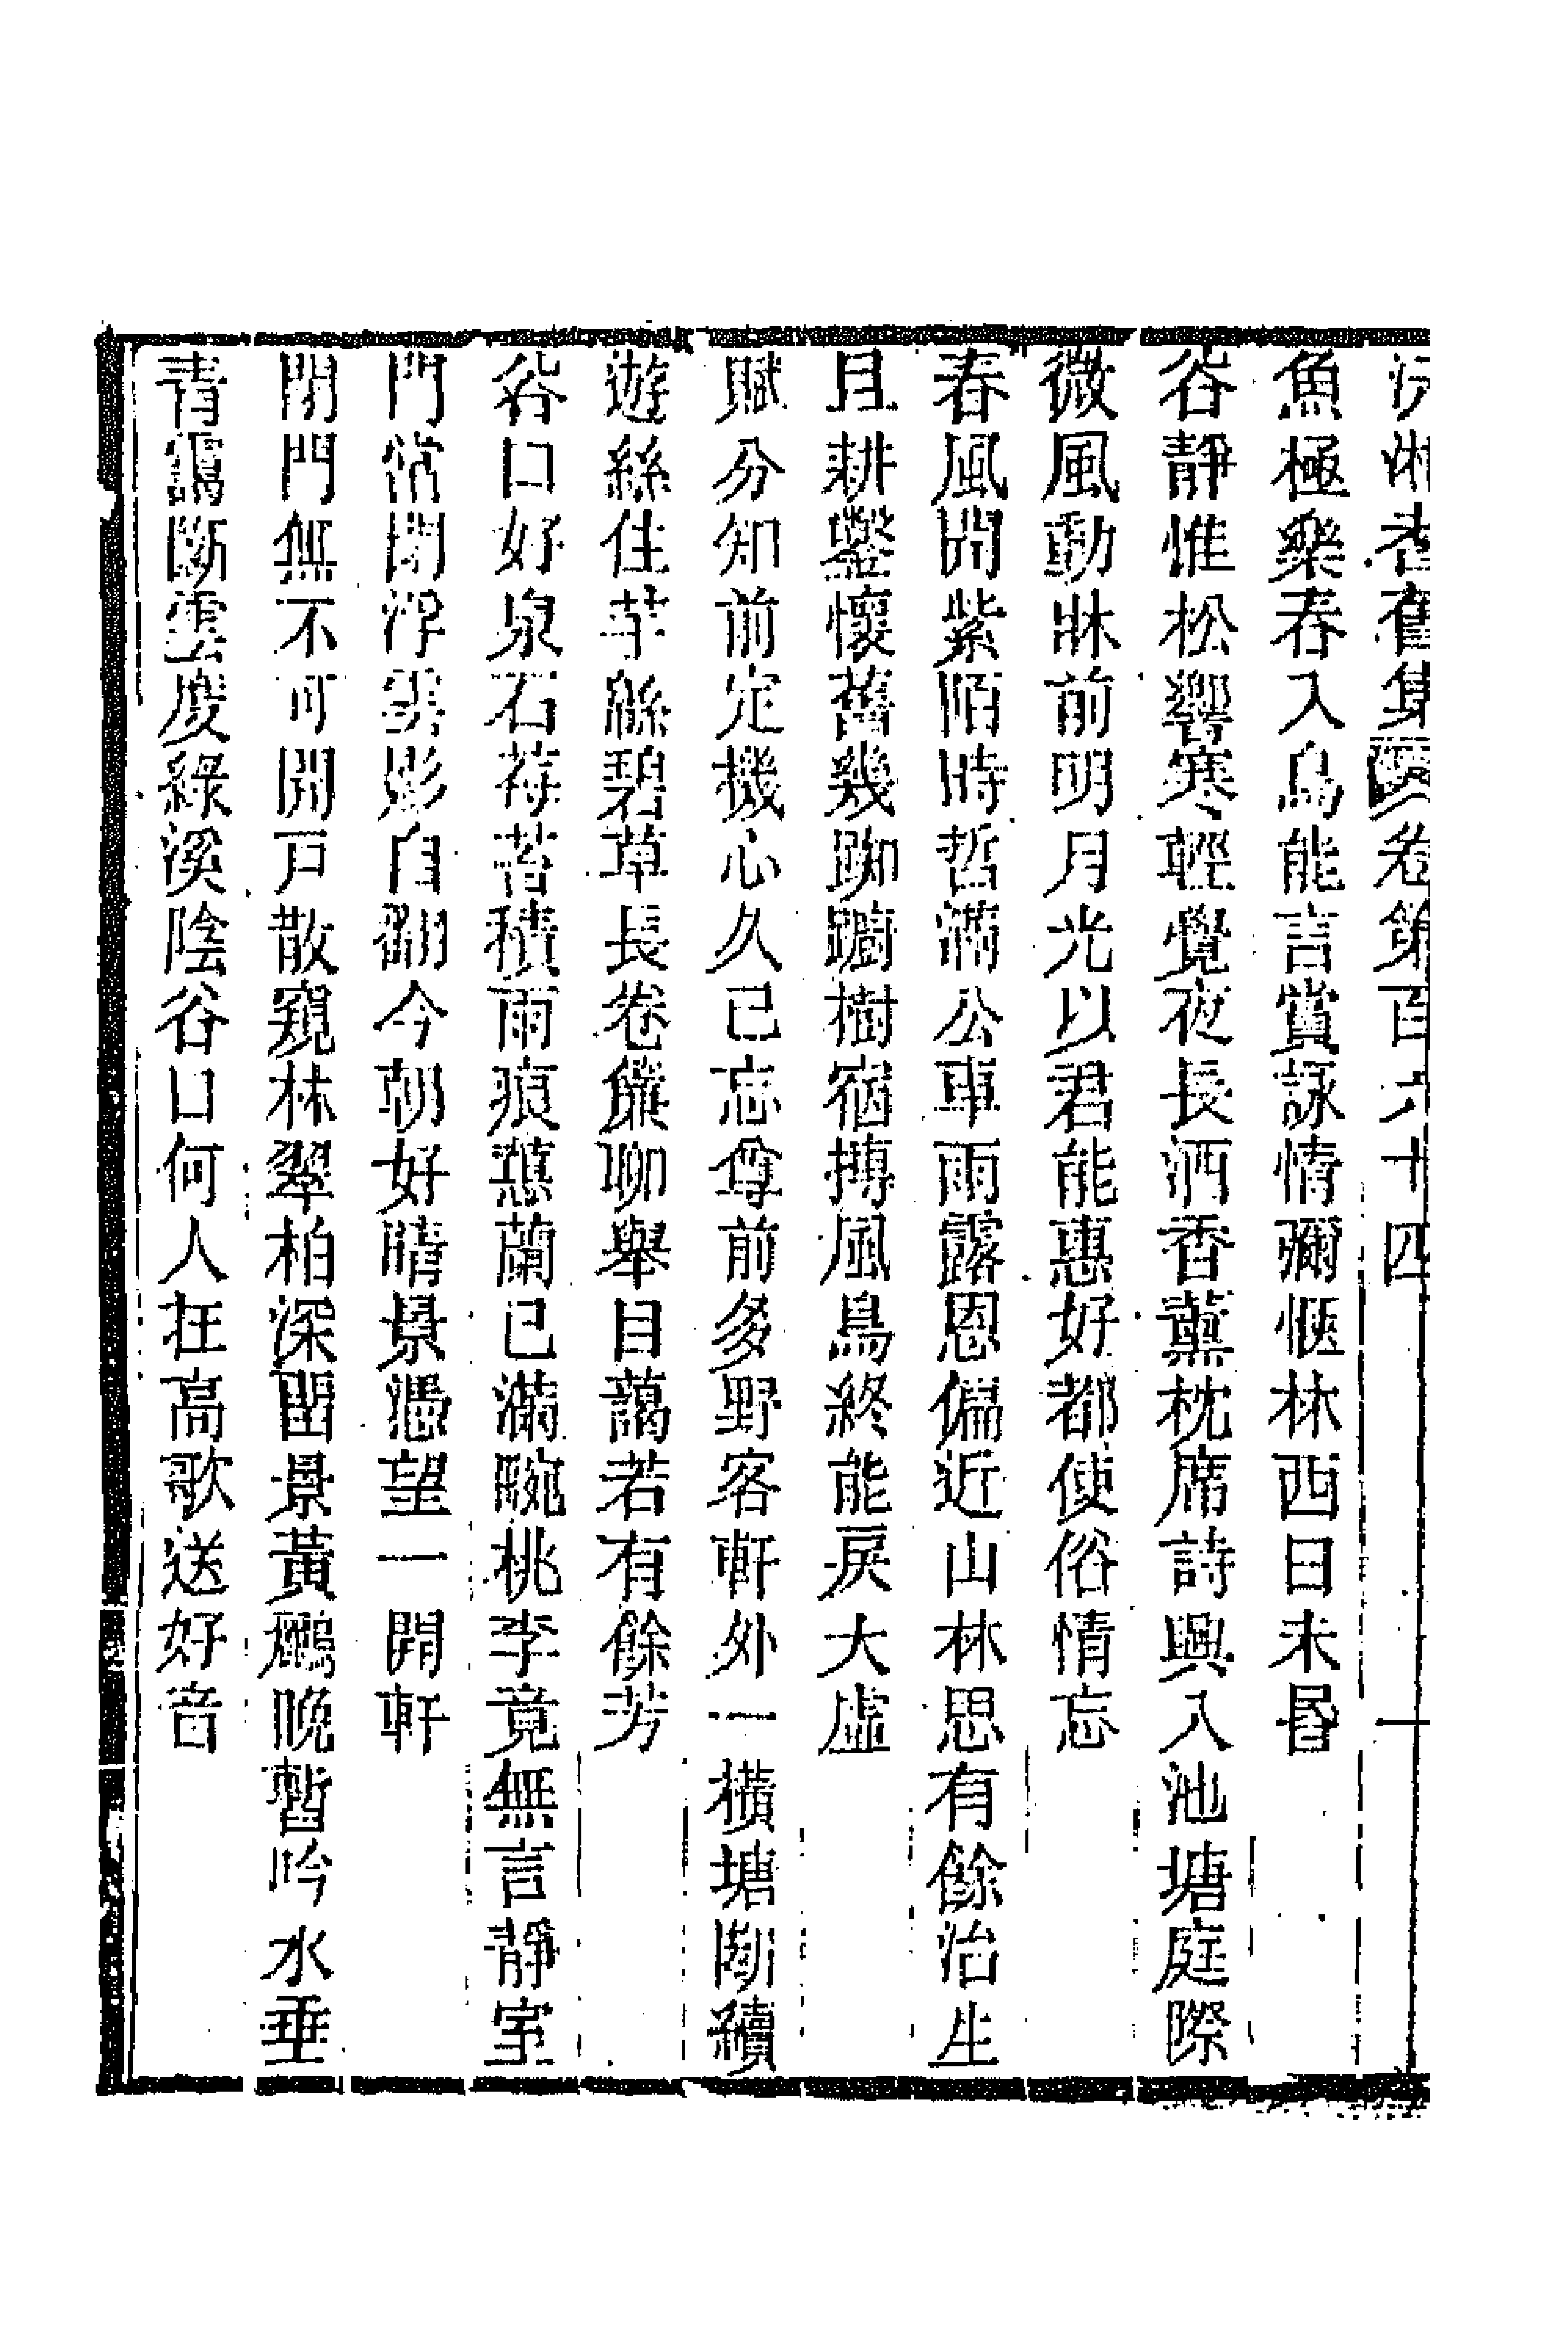 沅湘耆舊集卷第百六十四 一
魚極樂春入鳥能言賞詠情彌愜林西日未昬
谷靜惟松響寒輕覺夜長洒香薰枕席詩興入池塘庭際
微風動牀前明月光以君能惠好都使俗情忘
春風開紫陌時哲滿公車雨露恩偏近山林思有餘治生
且耕鑿懷舊幾踟躕樹宿摶風鳥終能戾大虛
賦分知前定機心久已忘尊前多野客軒外一橫塘斷續
遊絲住芊緜碧草長卷簾聊舉目藹若有餘芳
谷口好泉石莓苔積雨痕蕙蘭已滿畹桃李竟無言靜室
門常閉浮雲影自翻今朝好晴景憑望一開軒
閉門無不可開戸散窺林翠柏深畱景黃鸝晚暫吟水垂
青靄斷雲度綠溪陰谷口何人在高歌送好音